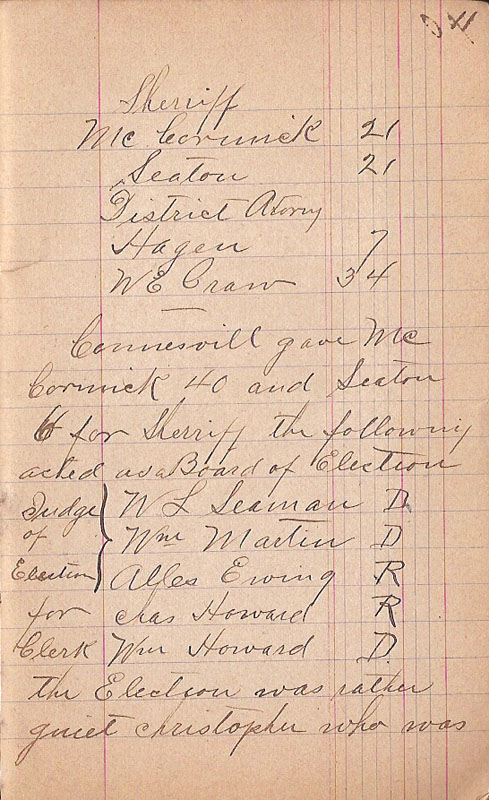 241
Sherriff
Mc Cormick 21
Seaton 21
District Atorny
Hagen 7
W E Craw 34
Connesvill gave Mc
Cormick 40 and Seaton
6 for Sherriff the following
acted as a Board of Election
Judge of Election } W L Seaman D
Wm Martin D
Alles Ewing R
for chas Howard R
Clerk Wm Howard D.
the Election was rather
quiet christopher who was